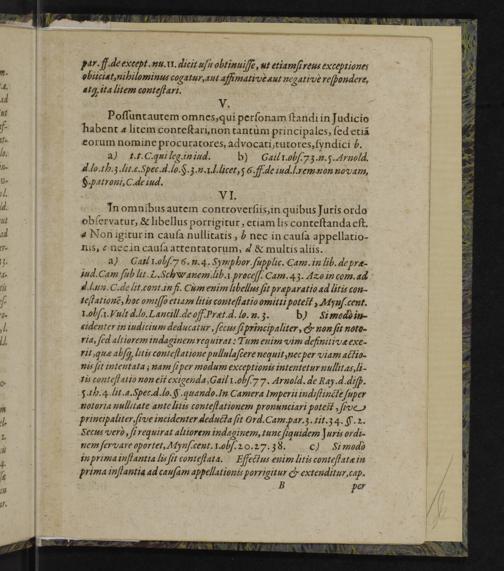 par. ff. de except. nu. 11. dicit usu obtinuisse, ut etiam si reus exceptiones
obiiciat, nihilominus cogatur, aut affirmativè aut negativè respondere,
atq; ita litem contestari.
V.
Possunt autem omnes, qui personam standi in Judicio
habent a litem contestari, non tantùm principales, sed etiã
eorum nomine procuratores, advocati, tutores, syndici b.
a) l. 1. C. qui leg. in iud. b) Gail 1. obs. 73. n. 5. Arnold.
d. lo. th. 3. lit. a. Spec. d. lo. §. 3. n. 1. l. licet, 56. ff. de iud. l. rem non novam,
§. patroni, C. de iud.
VI.
In omnibus autem controversiis, in quibus Juris ordo
observatur, & libellus porrigitur, etiam lis contestanda est.
a Non igitur in causa nullitatis, b nec in causa appellatio-
nis, c nec in causa attentatorum, d & multis aliis.
a) Gail 1. obs. 76. n. 4. Symphor. supplic. Cam. in lib. de præ-
iud. Cam sub lit. L. Schwanem. lib. 1. process. Cam. 43. Azo in com. ad
d. l. un. C. de lit. cont. in fi. Cum enim libellus sit præparatio ad litis con-
testationẽ, hoc omisso etiam litis contestatio omitti potest, Myns. cent.
1. obs. 1. Vult d. lo. Lancill. de off. Præt. d. lo. n. 3. b) Si modò in-
cidenter in iudicium deducatur, secus si principaliter, & non sit noto-
ria, sed altiorem indaginem requirat: Tum enim vim definitivæ exe-
rit, quæ absq; litis contestatione pullulascere nequit, nec per viam actio-
nis sit intentata; nam si per modum exceptionis intentetur nullitas, li-
tis contestatio non eit exigenda, Gail 1. obs. 77. Arnold. de Ray. d. disp.
5. th. 4. lit. a. Spec. d. lo. §. quando. In Camera Imperii indistinctè super
notoria nullitate ante litis contestationem pronunciari potest, sive
principaliter, sive incidenter deducta sit Ord. Cam. par. 3. tit. 34. §. 2.
Secus verò, si requirat altiorem indaginem, tunc siquidem Juris ordi-
nem servare oportet, Myns. cent. 1. obs. 20. 27. 38. c) Si modò
in prima instantia lis sit contestata. Effectus enim litis contestatæ in
prima instantia ad causam appellationis porrigitur & extenditur, cap.
B per